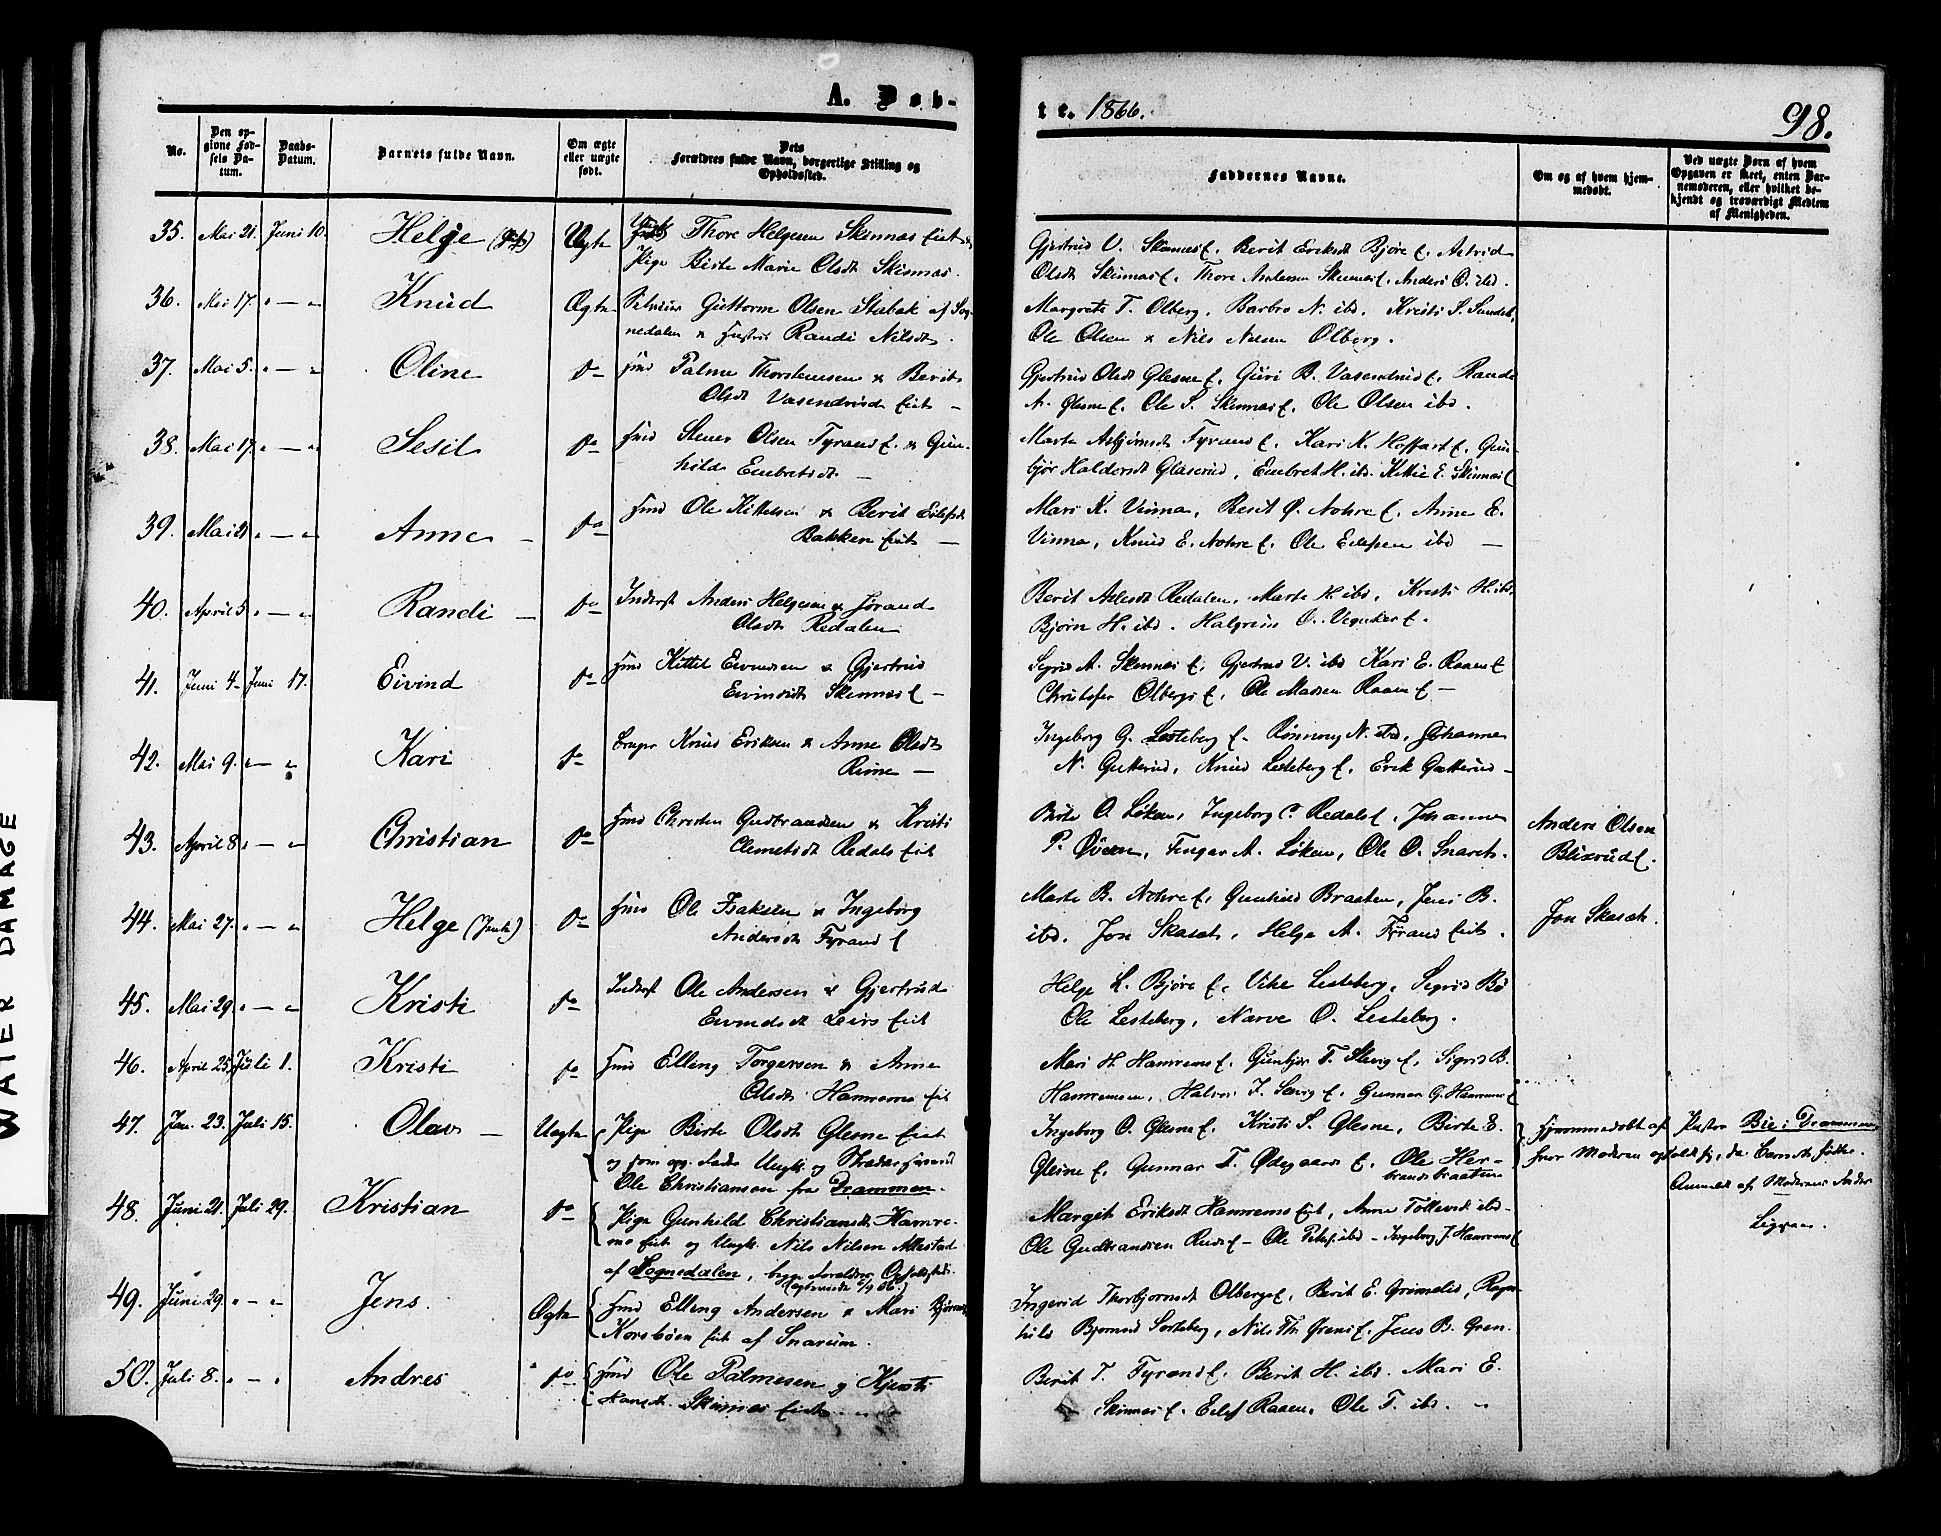 A. Døb-
te. 1866.
98.
No.
Den opgivne Fødsels Datum.
Daabs-Datum.
Barnets fulde Navn.
Om ægte eller uægte født.
Dets Forældres fulde Navn, borgerlige Stilling og Opholdssted.
Faddernes Navne.
Om og af hvem hjemmedøbt.
Ved uægte Børn af hvem Opgaven er skeet, enten Barnemoderen, eller hvilket bekjendt og troværdigt Medlem af Menigheden.
35. Mai 21. Juni 10. Helge Uægte Thore Helgesen Skinnes Eiet
Pige Birte Marie Olsdt Skinnes.
Gjertrud V. Skinnes E. Berit Eriksdt Bjøre E. Astrid
Olsdt Skinnes E. Thore Andersen Skinnes E. Anders O. ibd.
36. Mai 17. " — " Knud Ægte Guttorm Olsen Stabak af Sog-
nedalen & Hustru Randi Nilsdt.
Margrete T. Olberg, Barbro N. ibd. Kristi S.
Ole Olsen & Nils Nilsen Olberg.
37. Mai 5. " — " Oline do Hmd Palme Thorstensen & Berit
Olsdt Vasendrud Eiet —
Gjertrud Olsdt Glesne E. Guri R. Vasendrud E. Randi
A. Glesne E. Ole S. Skinnes E. Ole Olsen ibd.
38. Mai 17. " — " Sesil do Hmd Stener Olsen Tyrand E. & Gun-
hild Embretsdt —
Marte Asbjørnsdt Tyrand E. Kari K. Hoffart E. Gun-
bjør Haldorsdt Glaserud, Embret H. ibd. Kittil E. Skinnes E
39. Mai 21 " — " Anne — do Hmd Ole Kittelsen & Berit Eilefsdt
Bakken Eiet —
Mari K. Vinna, Berit Ø. Nohre E. Anne E.
Vinna, Knud E. Nohre E. Ole Eilefsen ibd —
40. April 5 " — " Randi — do Inderst Anders Helgesen & Jørand
Olsdt Redalen
Berit Redalen, Marte H ibd, Kristi H. ibd.
Bjørn H. ibd. Halgrim O. Veguker E.
41. Juni 4 Juni 17. Eivind do Hmd Kittil Eivindsen & Gjertrud
Eivindsdt Skinnes E —
Sigrid A. Skinnes E. Gjertrud V. ibd Kari E. Raaen E
Christofer Olbergs E. Ole Madsen Raaen E —
42. Mai 9. " — " Kari do Bruger Knud Eriksen & Anne Olsdt
Rime —
Ingeborg G. Lesteberg E. Rønnoug N. ibd, Johanne
N. Gutterud, Knud Lesteberg E. Erik Gutterud —
43. April 8. " — " Christian do Hmd Christen Gudbrandsen & Kristi
Clemetsdt Redals Eiet
Birte O. Løken, Ingeborg C. Redals E. Johanne
P. Øveren, Fingar A. Løken, Ole O. Snaret.
Anders Olsen
Blixrud E.
44. Mai 27. " — " Helge do Hmd Ole Isaksen & Ingeborg
Andersdt Tyrand E
Marte B. Nohre E. Gunhild Braaten, Jens B.
ibd. Jon Skasæt. Helge A. Tyrand Eiet.
Jon Skasæt.
45. Mai 29. " — " Kristi do Inderst Ole Andersen & Gjertrud
Eivindsdt Leirs Eiet
Helge L. Bjøre E. Vike Lesteberg, Sigrid Bø
Ole Lesteberg, Narve O. Lesteberg.
46. April 25. Juli 1. Kristi do Hmd Elling Torgersen & Anne
Olsdt Hamremo Eiet
Mari H. Hamremo E. Gunbjør T. E, Sigrid B.
Hamremoen, Halvor E. Gunnar G. Hamremo E
47. Jan. 23. Juli 15. Olav — Uægte Pige Birte Olsdt Glesne Eiet
og som opg. Fader Ungk. og
Ole Christiansen fra Drammen.
Ingeborg O. Glesne E. Kristi S. Glesne, Birte E.
Glesne E. Gunnar T. Ødegaards E. Ole Her-
brandsbraaten
Hjemmedøbt af Pastor Bie i Drammen
hvor Moderen opholdt sig, da Barnet fødtes.
Anmeldt af Moderen.
48. Juni 21. Juli 29. Kristian do Pige Gunhild Christiansdt Hamre-
mo Eiet og Ungk. Nils Nilsen Allestad
af Sognedalen, begge Forældres Opholdssted.
Margit Eriksdt Hamremo Eiet, Anne Tollevsdt ibd —
Ole Gudbrandsen Ruds E — Ole ibd — Ingeborg J. Hamremo E
49. Juni 29. " — " Jens. Ægte Hmd Elling Andersen & Mari Bjørnsdt
Korsbøen Eiet af Snarum.
Ingerid Thorbjørnsdt Olbergs E, Berit E. Grimelid, Ragn-
hild Bjørnsd Lesteberg, Nils Th. Grens E. Jens B. Gren.
50. Juli 8. " — " Andres do Hmd Ole Palmesen og Kjersti
Hansdt. Skinnes Eiet
Berit T. Tyrand E. Berit H. ibd. Mari E.
Skinnes E. Eilef Raaen. Ole T. ibd.
WATER DAMAGE